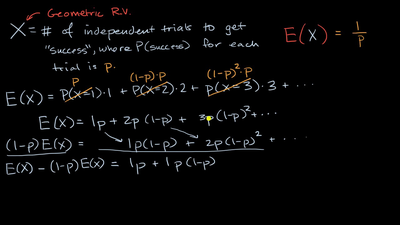 Geometric R.V.
X = # of independent trials to get
"success", where P(success) for each
trial is p.
E(X) = 1/p
p (1-p)·p (1-p)²·p
E(X) = P(X=1)·1 + P(X=2)·2 + P(X=3)·3 + ···
E(X) = 1p + 2p(1-p) + 3p(1-p)² + ···
(1-p)E(X) = 1p(1-p) + 2p(1-p)² + ···
E(X) - (1-p)E(X) = 1p + 1p(1-p)